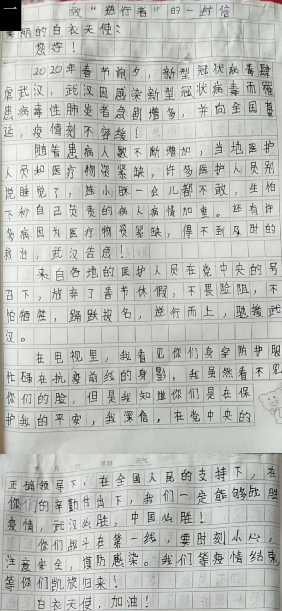 一
致“逆行者”的一封信
美丽的白衣天使：
您好！
2020年春节前夕，新型冠状病毒肆
虐武汉，武汉因感染新型冠状病毒而罹
患病毒性肺炎者急剧增多，并向全国蔓
延，疫情刻不容缓！
随着患病人数不断增加，当地医护
人员和医疗物资紧缺，许多医护人员别
说睡觉了，连小眯一会儿都不敢，生怕
下秒自己负责的病人病情加重。还有许
多病因为医疗物资紧缺，得不到及时的
救治，武汉告急！
来自各地的医护人员在党中央的号
召下，放弃了春节休假，不畏险阻，不
怕牺牲，踊跃报名，逆行而上，驰援武
汉。
在电视里，我看见你们身穿防护服
忙碌在抗疫前线的身影，我虽然看不见
你们的脸，但是我知道你们是在保
护我的平安，我深信，在党中央的
正确领导下，在全国人民的支持下，在
你们的辛勤付出下，我们一定能够战胜
疫情，武汉必胜，中国必胜！
你们战斗在第一线，要时刻小心，
注意安全，谨防感染。我们等疫情结束
等你们凯旋归来！
白衣天使，加油！